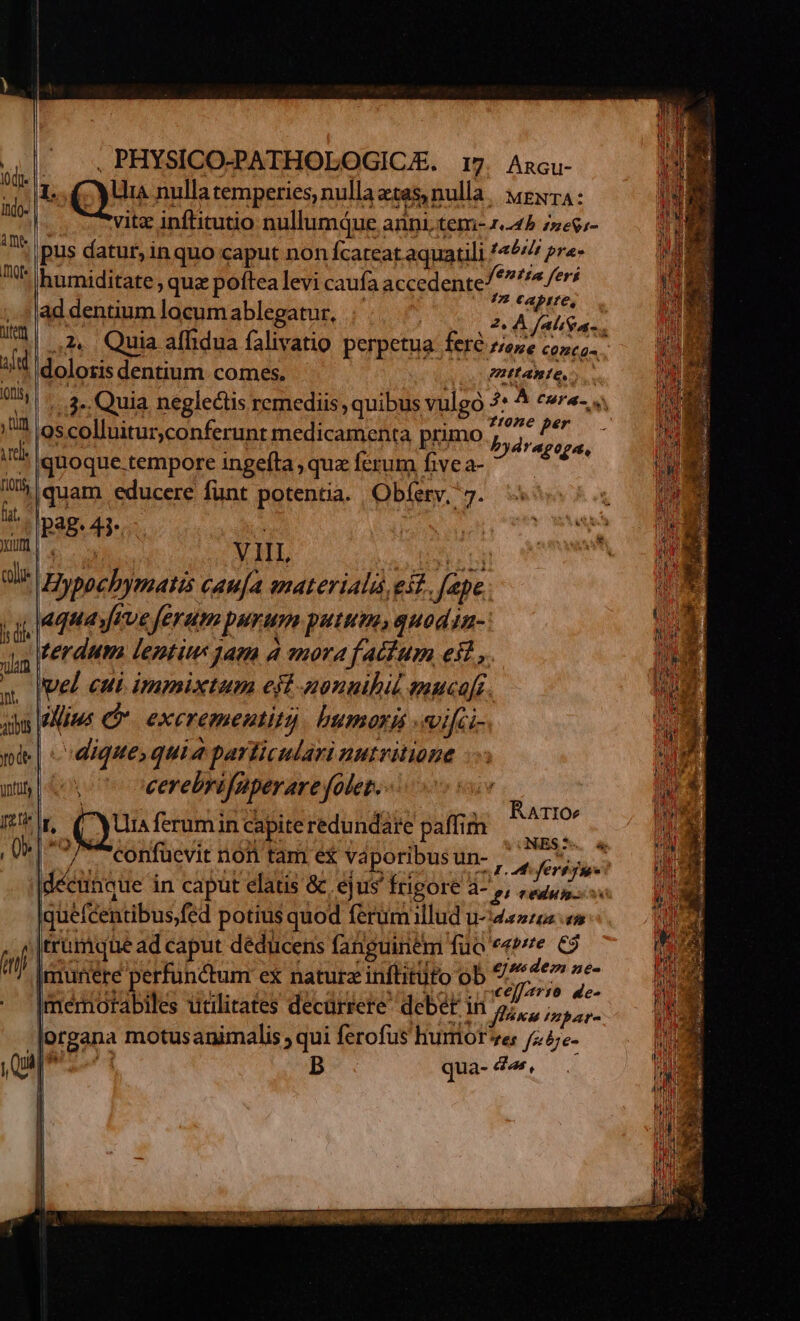 PHYSICO-PATHOLOGICÆ. 17.
1. QUia nulla temperies, nulla ætas, nulla
vitæ inſtitutio nullumque anni tem-
pus datur, in quo caput non ſcateat aquatili
humiditate, quæ poſtea levi cauſa accedente
ad dentium locum ablegatur.
2. Quia aſſidua ſalivatio perpetua ferè
doloris dentium comes.
3. Quia neglectis remediis, quibus vulgò
os colluitur, conferunt medicamenta primo
quoque tempore ingeſta, quæ ſerum ſive a-
quam educere ſunt potentia. Obſerv. 7.
pag. 43.
ARGU-
MENTA:
1. Ab ineſti-
tabili præ-
ſentia ferè
in capite,
2. A ſaliva-
tione conco-
mitante,
3. A cura-
tione per
hydragoga,
VIII.
Hypochymatis cauſa materialis eſt ſæpe
aqua, ſive ſerum purum putum, quod in-
terdum lentius jam à mora factum eſt,
vel cui immixtum eſt nonnihil mucoſi
illius & excrementitij humoris viſci-
dique, qui à particulari nutritione
cerebri ſuperare ſolet.
1. QUia ſerum in capite redundare paſſim
conſuevit non tam ex vaporibus un-
decunque in caput elatis & ejus frigore a-
queſcentibus, ſed potius quod ſerum illud u-
trumque ad caput deducens ſanguinem ſuo
munere perfunctum ex naturæ inſtituto ob
memorabiles utilitates decurrere debet in
organa motus animalis, qui ſeroſus humor
RATIO-
NES:
1. A ſeri ju-
gi redun-
dantia in
capite &
ejusdem ne-
ceſſario de-
fluxu in par-
tes ſubje-
ctas,
B
qua-